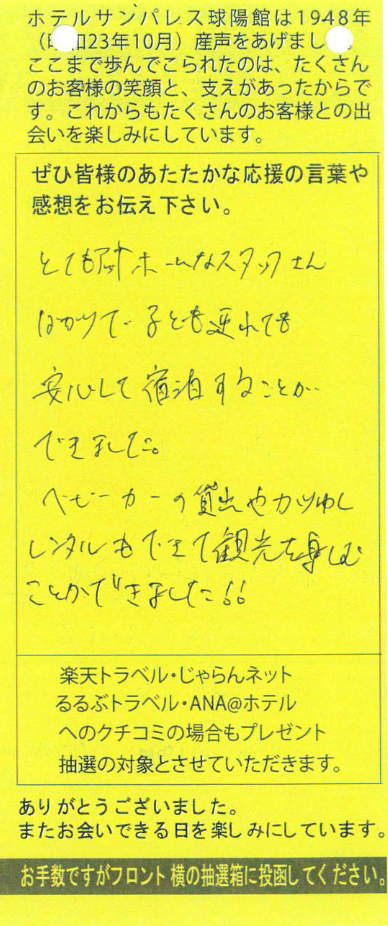 ホテルサンパレス球陽館は1948年
(昭和23年10月)産声をあげまし。
ここまで歩んでこられたのは、たくさん
のお客様の笑顔と、支えがあったからで
す。これからもたくさんのお客様との出
会いを楽しみにしています。
ぜひ皆様のあたたかな応援の言葉や
感想をお伝え下さい。
とてもアットホームなスタッフさん
ばかりで子ども連れでも
安心して宿泊することが
できました。
ベビーカーの貸出や
レンタルもできて観光を楽しむ
ことができました!!
楽天トラベル・じゃらんネット
るるぶトラベル・ANA@ホテル
へのクチコミの場合もプレゼント
抽選の対象とさせていただきます。
ありがとうございました。
またお会いできる日を楽しみにしています。
お手数ですがフロント横の抽選箱に投函してください。